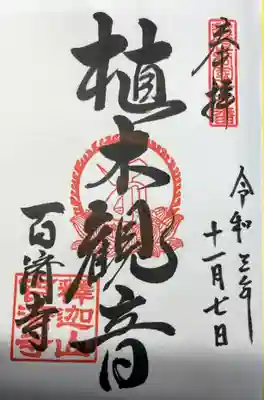 奉拝
令和三年
十一月七日
植木観音
百済寺
釋迦山
百済寺